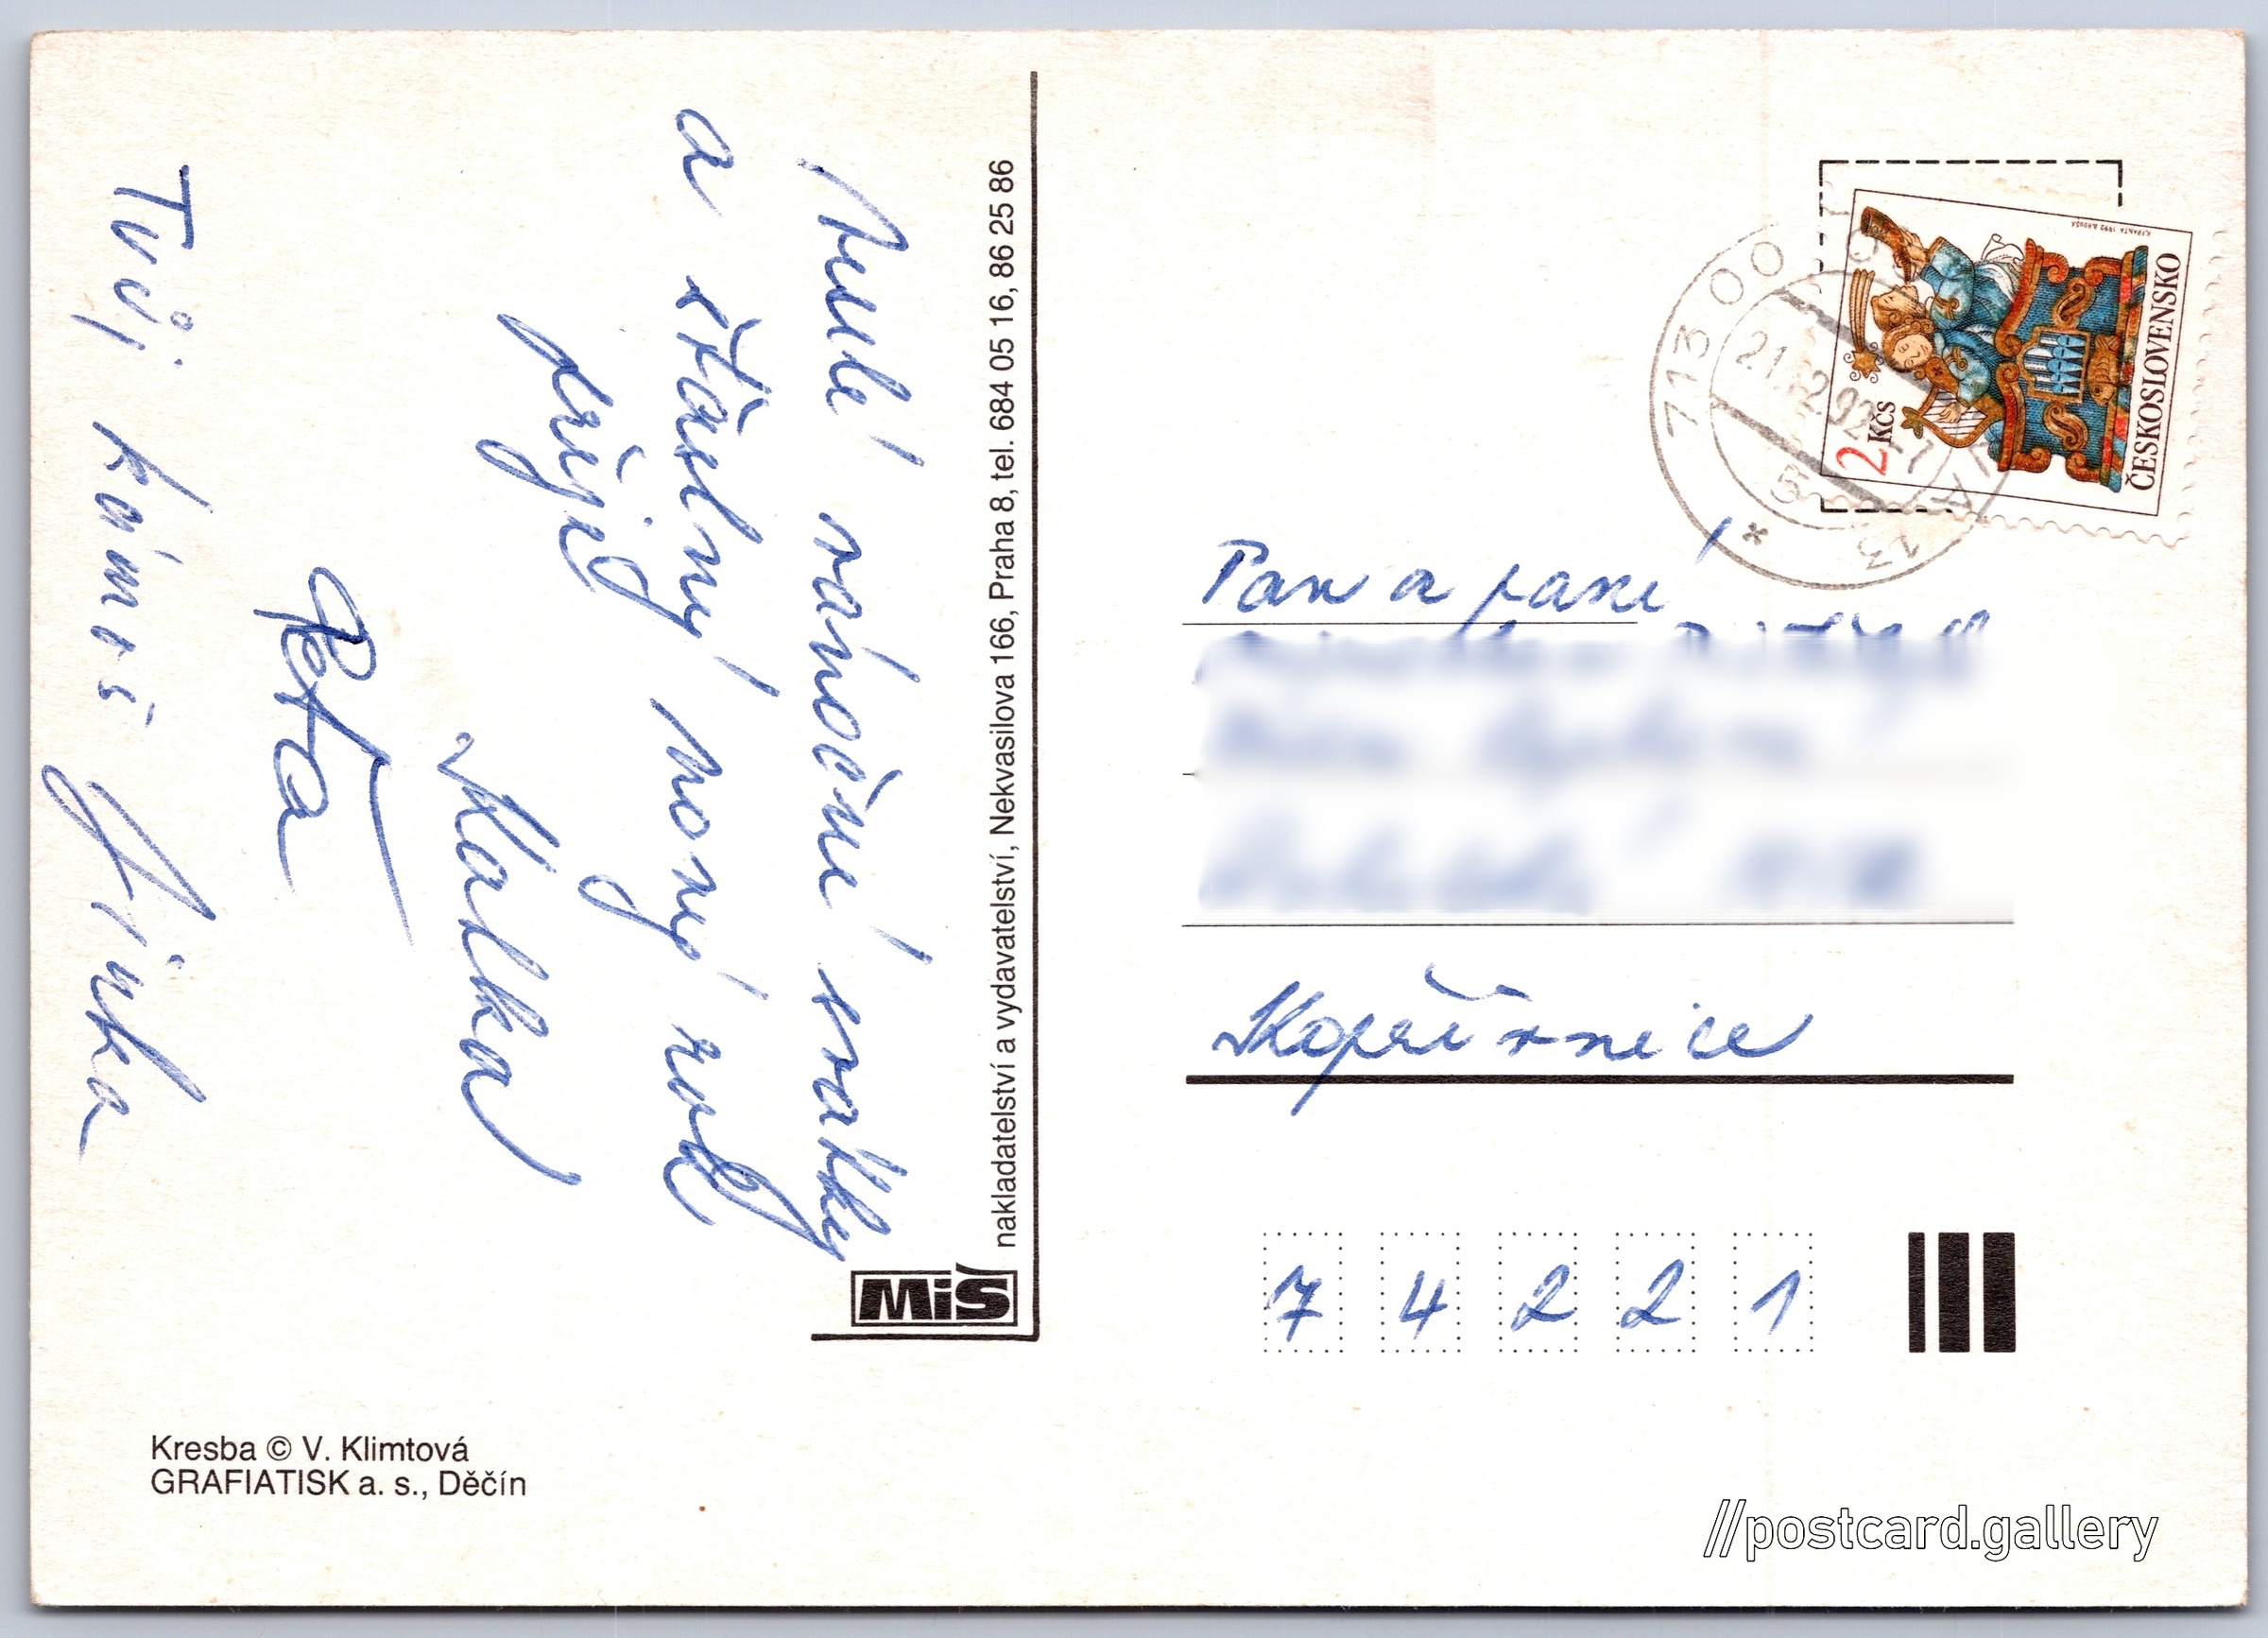 Veselé vánoční svátky
a šťastný nový rok
přeje
Tvůj kámoš Jirka
nakladatelství a vydavatelství, Nekvasilova 166, Praha 8, tel. 684 05 16, 86 25 86
MiŠ
Kresba © V. Klimtová
GRAFIATISK a. s., Děčín
ČESKOSLOVENSKO
2 Kčs
K.FRANTA 1992 B.HOUSA
713 00
Pan a paní
Kopřivnice
7 4 2 2 1
//postcard.gallery